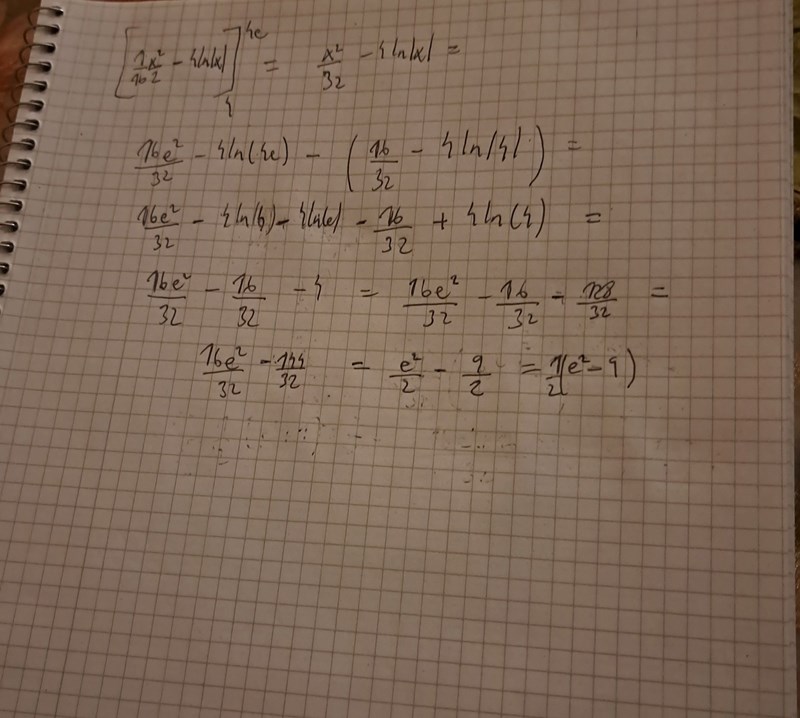 [1/16 x²/2 - 4ln|x|]₄⁴ᵉ = x²/32 - 4ln|x| =
16e²/32 - 4ln(4e) - (16/32 - 4ln|4|) =
16e²/32 - 4ln(4) - 4ln(e) - 16/32 + 4ln(4) =
16e²/32 - 16/32 - 4 = 16e²/32 - 16/32 - 128/32 =
16e²/32 - 144/32 = e²/2 - 9/2 = 1/2(e² - 9)